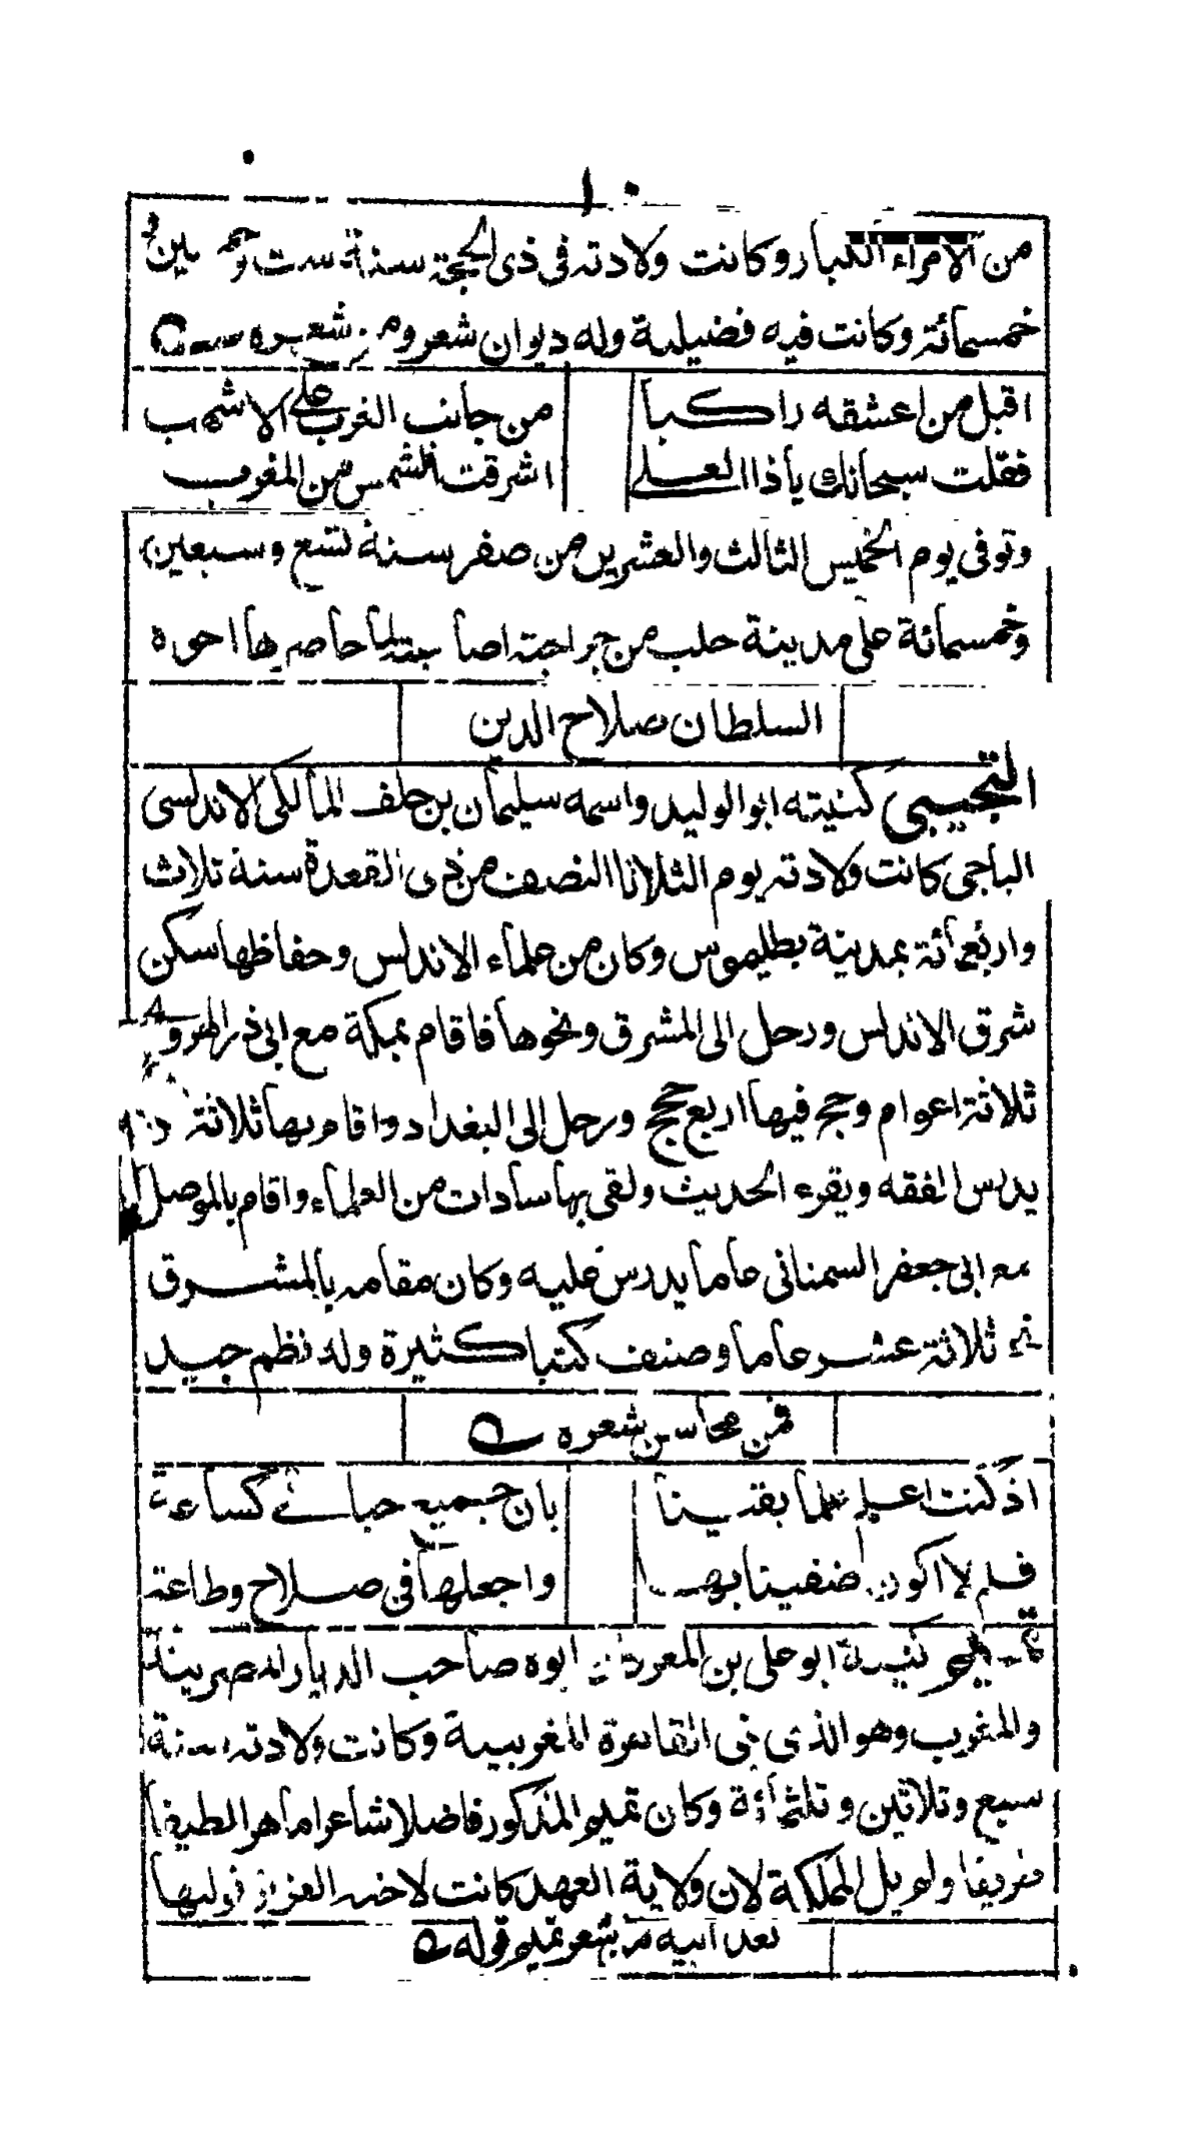 ١٠
من الامراء الكبار وكانت ولادته فى ذى الحجة سنة ست وخمسين و
خمسمائة وكانت فيه فضيلة وله ديوان شعر ومن شعره
اقبل من اعشقه راكبا من جانب الغرب على الاشهب
فقلت سبحانك يا ذا العلى اشرقت الشمس من المغرب
وتوفى يوم الخميس الثالث والعشرين من صفر سنة تسع وسبعين
وخمسمائة على مدينة حلب من جراحة اصابته لما حاصرها اخوه
السلطان صلاح الدين
التجيبى كنيته ابو الوليد واسمه سليمان بن خلف المالكى الاندلسى
الباجى كانت ولادته يوم الثلاثا النصف من ذى القعدة سنة ثلاث
واربعمائة بمدينة بطليموس وكان من علماء الاندلس وحفاظها سكن
شرق الاندلس ورحل الى المشرق ونحوها فاقام بمكة مع ابى ذر الهروى
ثلاثة اعوام وحج فيها اربع حجج ورحل الى البغداد واقام بها ثلاثة
يدرس الفقه ويقرء الحديث ولقى بها سادات من العلماء واقام بالموصل
مع ابى جعفر السمنانى عاما يدرس عليه وكان مقامه بالمشرق
نحو ثلاثة عشر عاما وصنف كتبا كثيرة وله نظم جيد
فمن محاسن شعره
اذ كنت اعلم علما يقينا بان جميع حياتى كساعة
فلم لا اكون ضنينا بها واجعلها فى صلاح وطاعة
تميم كنيته ابو على بن المعز كان ابوه صاحب الديار المصرية
والمغرب وهو الذى بنى القاهرة المغربية وكانت ولادته سنة
سبع وثلاثين وثلثمائة وكان تميم المذكور فاضلا شاعرا ماهرا لطيفا
ظريفا ولم يل المملكة لان ولاية العهد كانت لاخيه العزيز فوليها
بعد ابيه من شعر تميم قوله